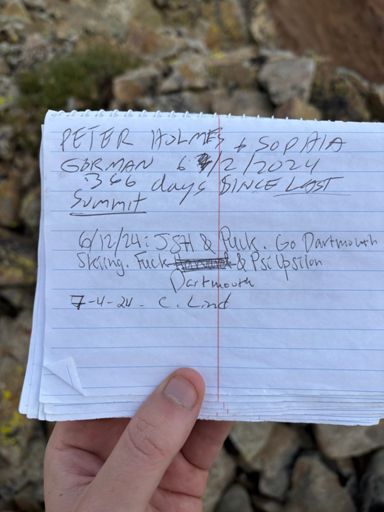 PETER HOLMES + SOPHIA
GORMAN 6/2/2024
366 days SINCE LAST
Summit
6/12/24: JSH & Puck. Go Dartmouth
Skiing. Fuck & Psi Upsilon
Dartmouth
7-4-24. C. Lind